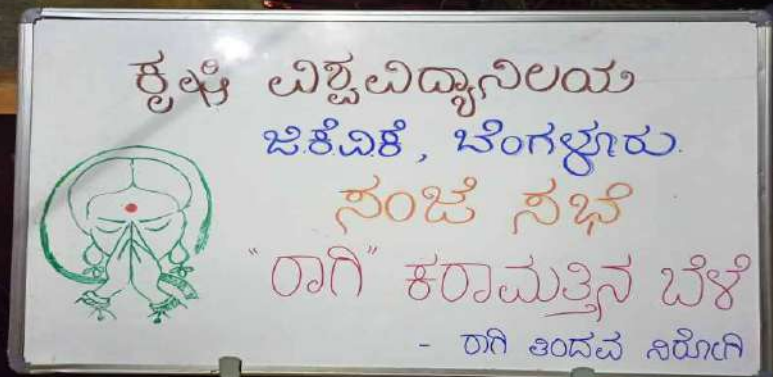 ಕೃಷಿ ವಿಶ್ವವಿದ್ಯಾನಿಲಯ
ಜಿ.ಕೆ.ವಿ.ಕೆ, ಬೆಂಗಳೂರು.
ಸಂಜೆ ಸಭೆ
"ರಾಗಿ" ಕರಾಮತ್ತಿನ ಬೆಳೆ
- ರಾಗಿ ತಿಂದವ ನಿರೋಗಿ